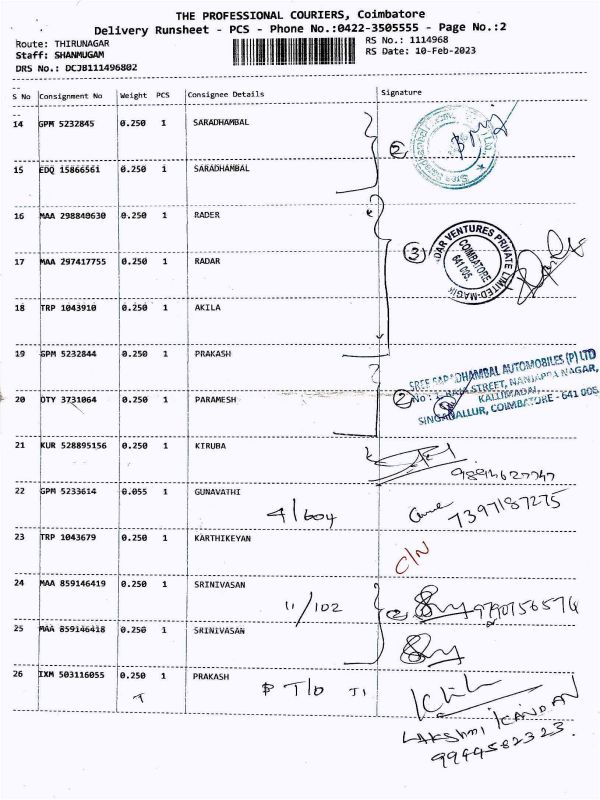 THE PROFESSIONAL COURIERS, Coimbatore
Delivery Runsheet - PCS - Phone No.:0422-3505555 - Page No.:2
Route: THIRUNAGAR
RS No.: 1114968
Staff: SHANMUGAM
RS Date: 10-Feb-2023
DRS No.: DCJB111496802
S No Consignment No Weight PCS Consignee Details Signature
14 GPM 5232845 0.250 1 SARADHAMBAL
2
15 EDQ 15866561 0.250 1 SARADHAMBAL
16 MAA 298840630 0.250 1 RADER
3 DAR VENTURES PRIVATE LIMITED-MAGIK
COIMBATORE
641 005.
17 MAA 297417755 0.250 1 RADAR
18 TRP 1043910 0.250 1 AKILA
19 GPM 5232844 0.250 1 PRAKASH
SREE SARADHAMBAL AUTOMOBILES (P) LTD
20 OTY 3731064 0.250 1 PARAMESH
2 No : STREET, NANJAPPA NAGAR,
KALLIMADAI,
SINGANALLUR, COIMBATORE - 641 005
21 KUR 528895156 0.250 1 KIRUBA
22 GPM 5233614 0.055 1 GUNAVATHI
4/604
7397187275
23 TRP 1043679 0.250 1 KARTHIKEYAN
C/N
24 MAA 859146419 0.250 1 SRINIVASAN
11/102 2 9790756574
25 MAA 859146418 0.250 1 SRINIVASAN
26 IXM 503116055 0.250 1 PRAKASH
LAKSHMI KANDAN
9944582323.